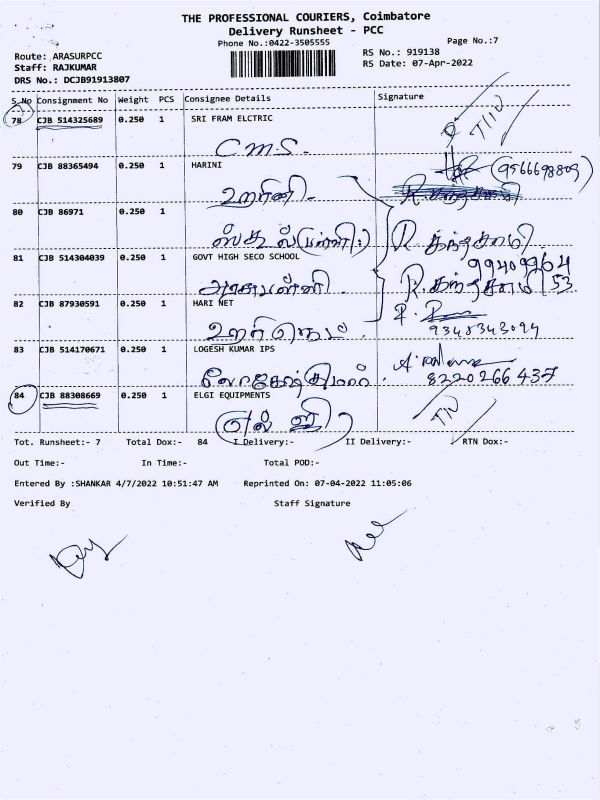 THE PROFESSIONAL COURIERS, Coimbatore
Delivery Runsheet - PCC
Phone No.:0422-3505555
Page No.:7
Route: ARASURPCC
RS No.: 919138
Staff: RAJKUMAR
RS Date: 07-Apr-2022
DRS No.: DCJB91913807
S.No Consignment No Weight PCS Consignee Details Signature
78 CJB 514325689 0.250 1 SRI FRAM ELCTRIC
C.M.S.
79 CJB 88365494 0.250 1 HARINI (9566698809)
ஹரினி
80 CJB 86971 0.250 1
R. கந்தசாமி
81 CJB 514304039 0.250 1 GOVT HIGH SECO SCHOOL 99409964
R. கந்தசாமி 53
82 CJB 87930591 0.250 1 HARI NET
9348343094
83 CJB 514170671 0.250 1 LOGESH KUMAR IPS
லோகேஷ்குமார் 8220266437
84 CJB 88308669 0.250 1 ELGI EQUIPMENTS
எல் ஜி
Tot. Runsheet:- 7 Total Dox:- 84 I Delivery:- II Delivery:- RTN Dox:-
Out Time:- In Time:- Total POD:-
Entered By :SHANKAR 4/7/2022 10:51:47 AM Reprinted On: 07-04-2022 11:05:06
Verified By Staff Signature